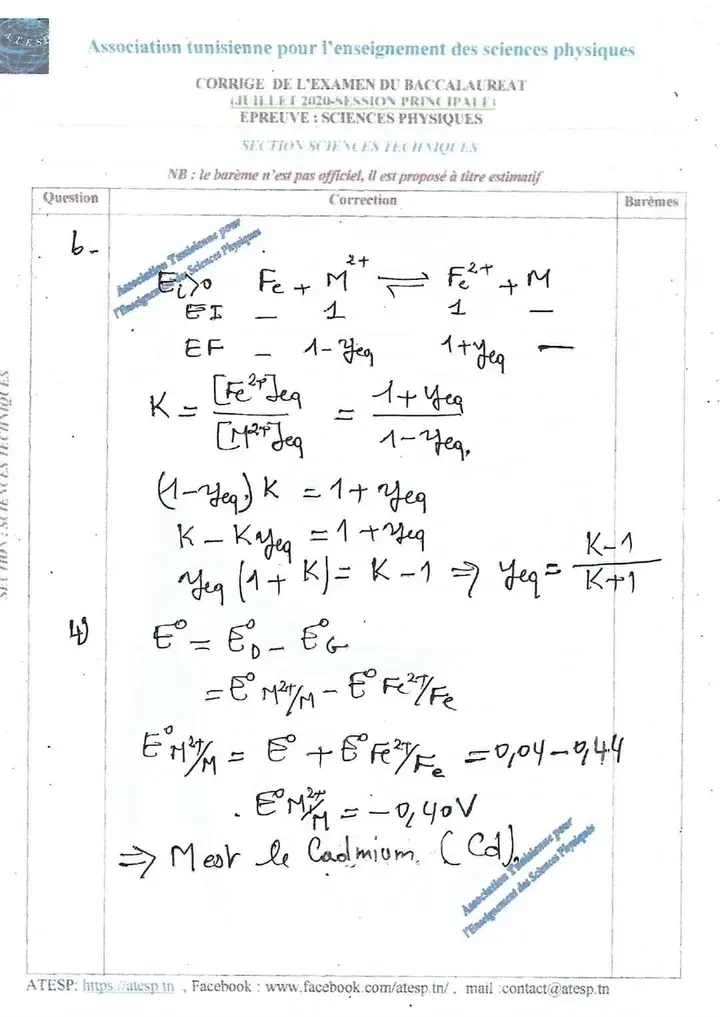 ATESP
Association tunisienne pour l'enseignement des sciences physiques
CORRIGE DE L'EXAMEN DU BACCALAUREAT
(JUILLET 2020-SESSION PRINCIPALE)
EPREUVE : SCIENCES PHYSIQUES
SECTION SCIENCES TECHNIQUES
NB : le barème n'est pas officiel, il est proposé à titre estimatif
Question Correction Barèmes
Association Tunisienne pour
l'Enseignement des Sciences Physiques
b-
Ei>0 Fe + M²⁺ ⇌ Fe²⁺ + M
EI – 1 1 –
EF – 1-yeq 1+yeq –
K = [Fe²⁺]eq / [M²⁺]eq = 1+yeq / 1-yeq.
(1-yeq) K = 1+yeq
K - Kyeq = 1+yeq
yeq (1 + K) = K - 1 ⇒ yeq = K-1 / K+1
4) E° = E°D - E°G
= E°M²⁺/M - E°Fe²⁺/Fe
E°M²⁺/M = E° + E°Fe²⁺/Fe = 0,04-0,44
. E°M²⁺/M = -0,40V
⇒ M est le Cadmium. (Cd).
Association Tunisienne pour
l'Enseignement des Sciences Physiques
SECTION : SCIENCES TECHNIQUES
ATESP: https://atesp.tn , Facebook : www.facebook.com/atesp.tn/ , mail :contact@atesp.tn